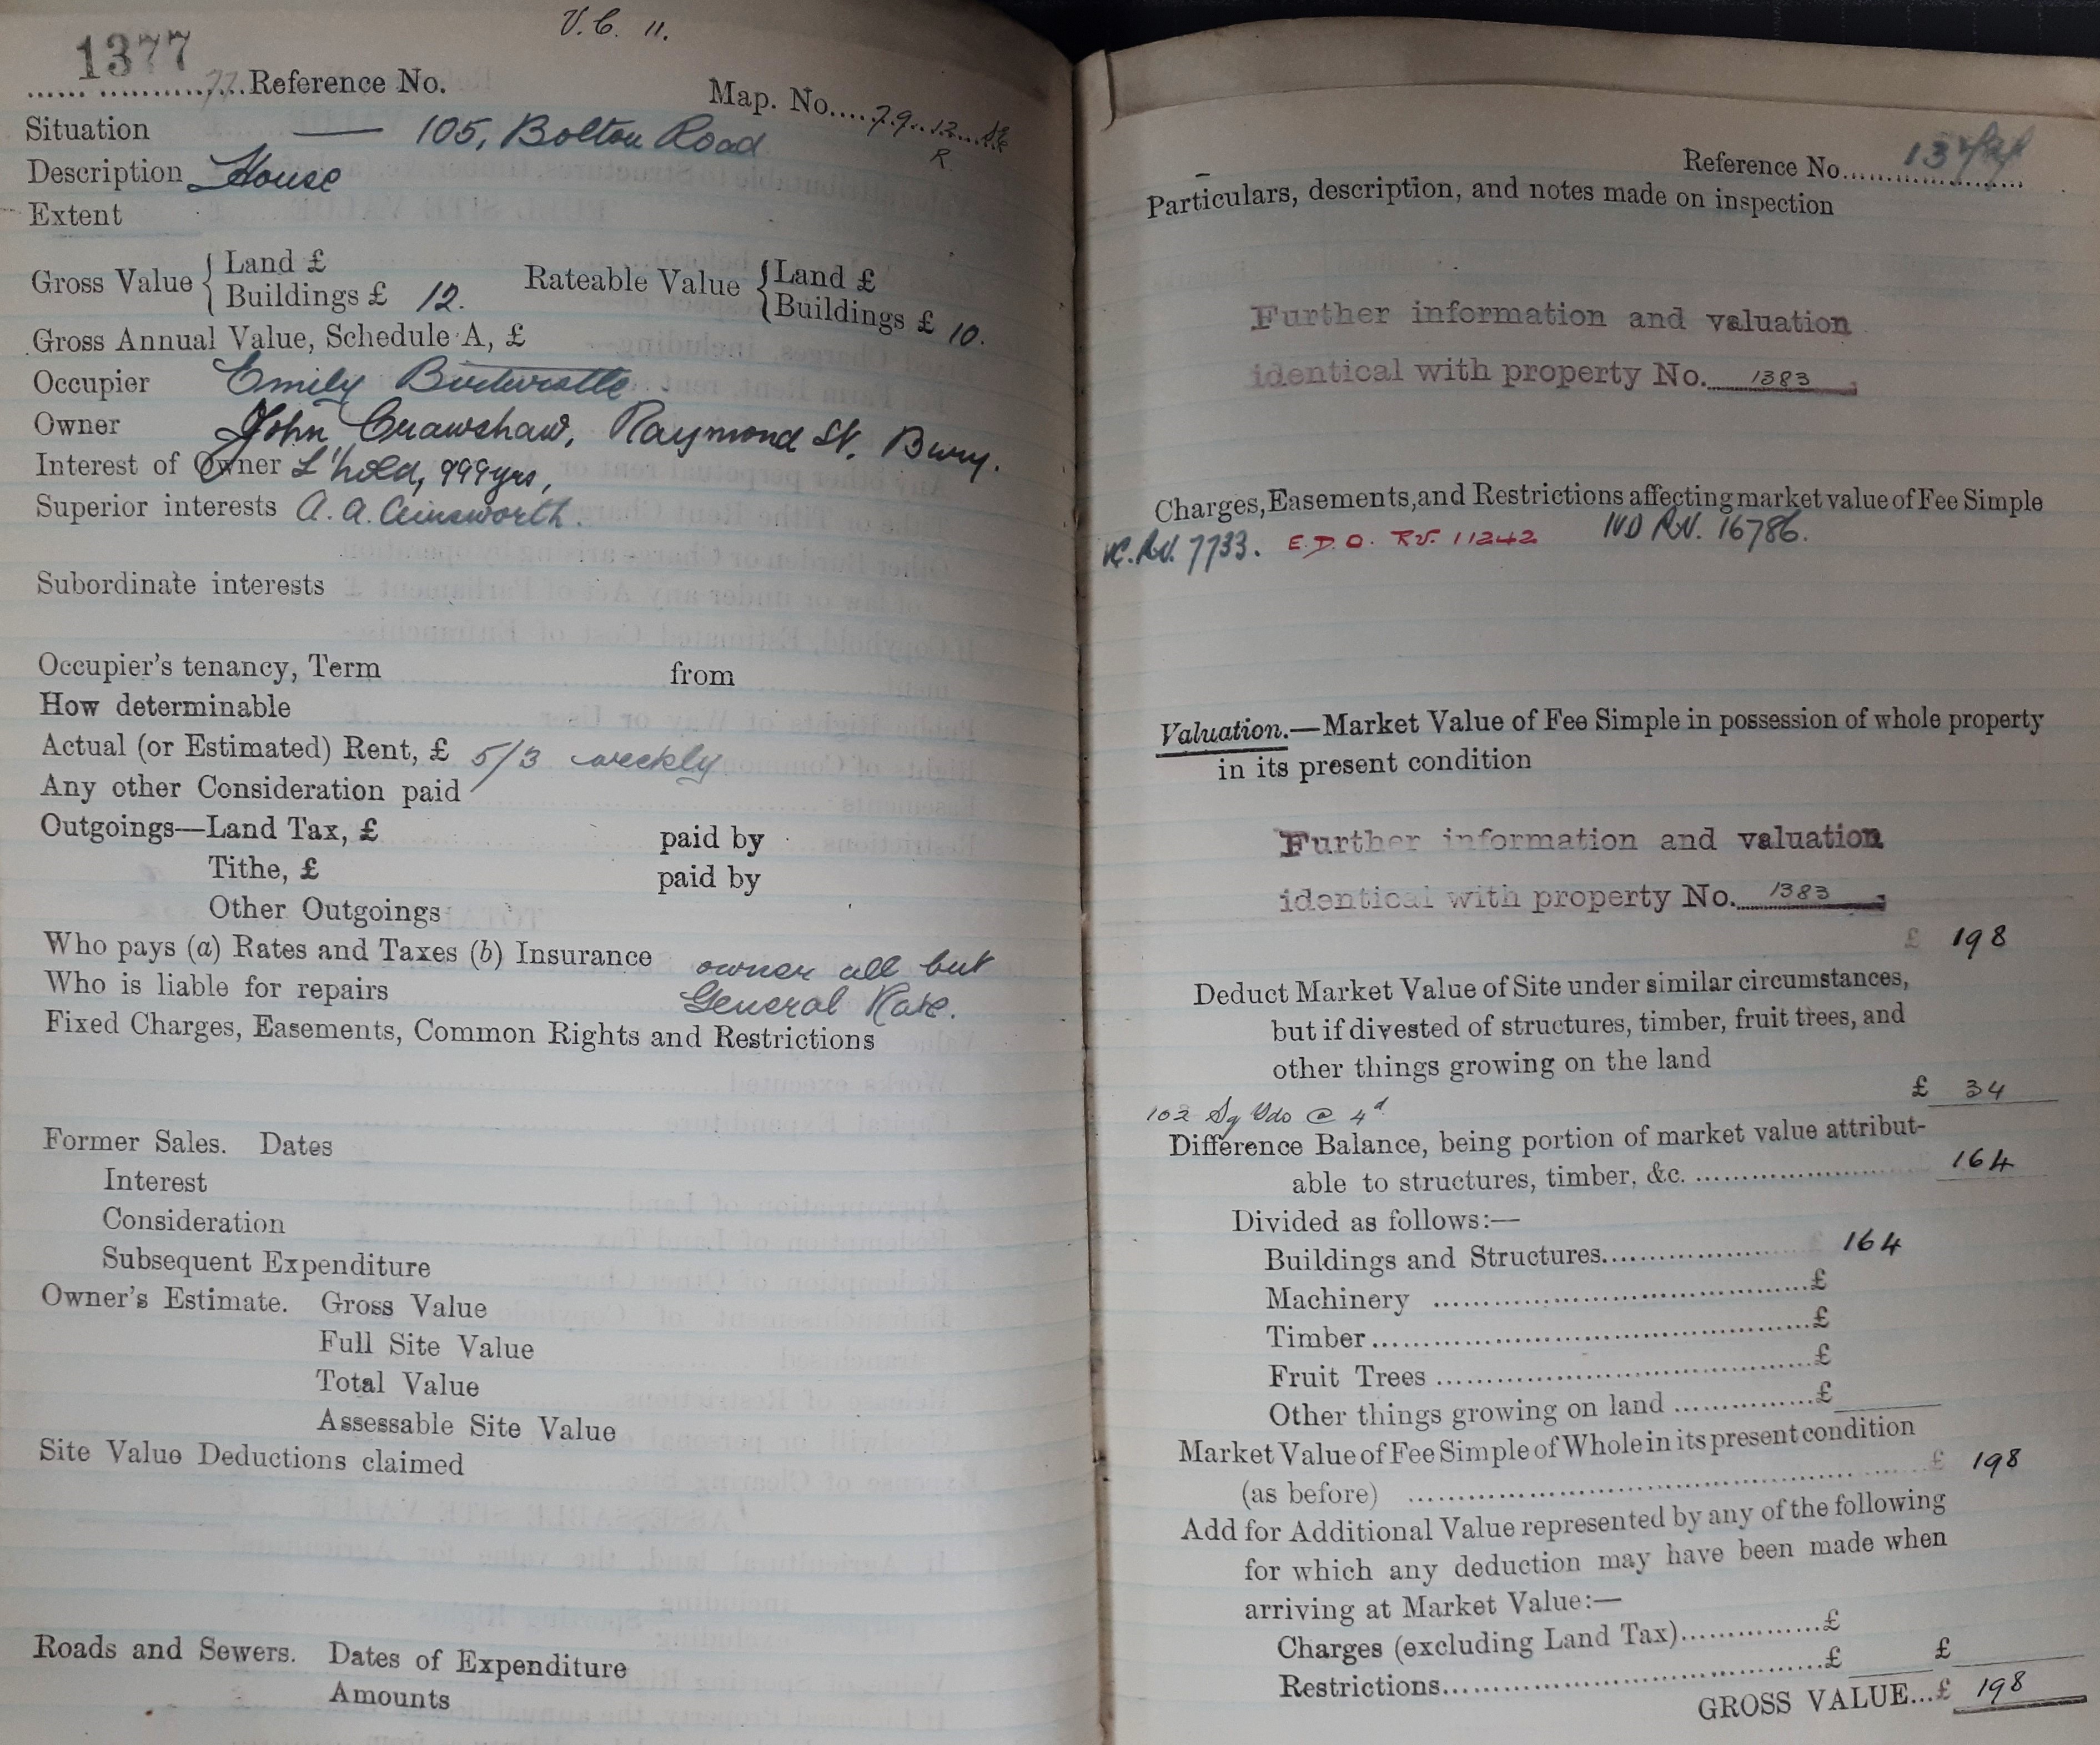 V.C. 11.
1377
77 Reference No.
Map. No. 79.12. SE
R
Situation — 105, Bolton Road
Description House
Extent
Gross Value { Land £
Buildings £ 12.
Rateable Value { Land £
Buildings £ 10.
Gross Annual Value, Schedule A, £
Occupier Emily
Owner John Crawshaw, Raymond St. Bury.
Interest of Owner L'hold, 999yrs,
Superior interests A. A. Ainsworth.
Subordinate interests
Occupier's tenancy, Term from
How determinable
Actual (or Estimated) Rent, £ 5/3 weekly
Any other Consideration paid
Outgoings—Land Tax, £ paid by
Tithe, £ paid by
Other Outgoings
Who pays (a) Rates and Taxes (b) Insurance owner all but
Who is liable for repairs General Rate.
Fixed Charges, Easements, Common Rights and Restrictions
Former Sales. Dates
Interest
Consideration
Subsequent Expenditure
Owner's Estimate. Gross Value
Full Site Value
Total Value
Assessable Site Value
Site Value Deductions claimed
Roads and Sewers. Dates of Expenditure
Amounts
Reference No. 1377
Particulars, description, and notes made on inspection
Further information and valuation
identical with property No. 1383
Charges, Easements, and Restrictions affecting market value of Fee Simple
VC. RV. 7733. E.D.O. RV. 11242 IVD RV. 16786.
Valuation.—Market Value of Fee Simple in possession of whole property
in its present condition
Further information and valuation
identical with property No. 1383
£ 198
Deduct Market Value of Site under similar circumstances,
but if divested of structures, timber, fruit trees, and
other things growing on the land
£ 34
102 Sq Yds @ 4d
Difference Balance, being portion of market value attribut-
able to structures, timber, &c. 164
Divided as follows:—
Buildings and Structures 164
Machinery £
Timber £
Fruit Trees £
Other things growing on land £
Market Value of Fee Simple of Whole in its present condition
(as before) £ 198
Add for Additional Value represented by any of the following
for which any deduction may have been made when
arriving at Market Value:—
Charges (excluding Land Tax) £
Restrictions £ £
GROSS VALUE...£ 198